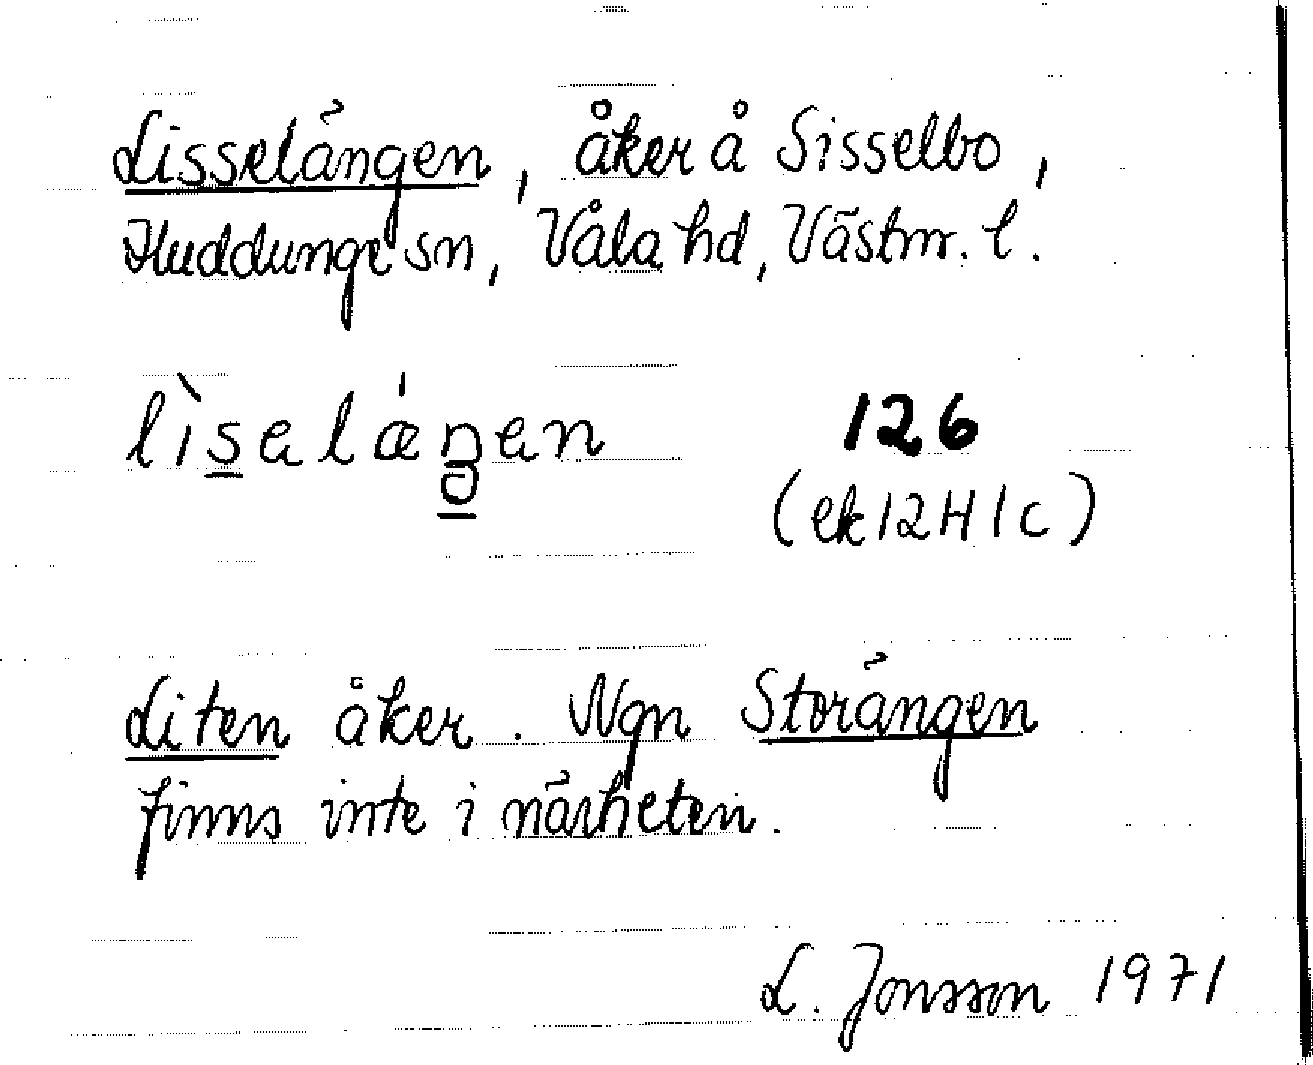 Lisselängen, åker å Sisselbo,
Huddunge sn, Våla hd, Västm. l.
lìselǽŋen
126
(ek 12H1c)
Liten åker. Ngn Storängen
finns inte i närheten.
L. Jonsson 1971